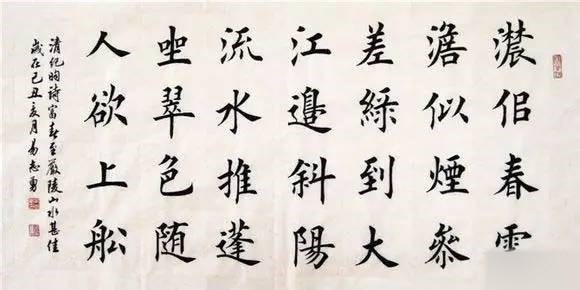 濃佀春雲
澹似煙參
差綠到大
江邊斜陽
流水推蓬
坐翠色随
人欲上舩
清紀昀詩富春至嚴陵山水甚佳
歲在己丑亥月易志勇